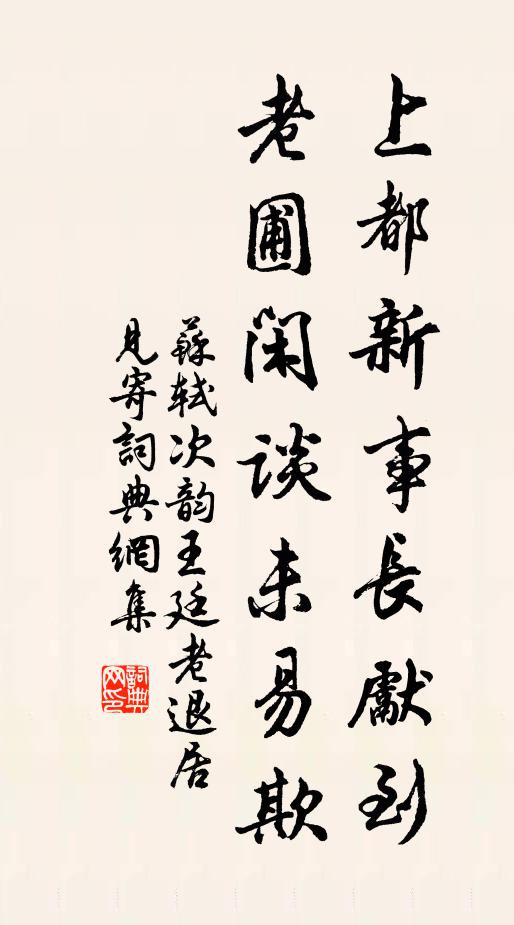 上都新事長獻到
老圃閑談未易欺
蘇軾次韵王廷老退居
見寄詞典網集
詞典网印